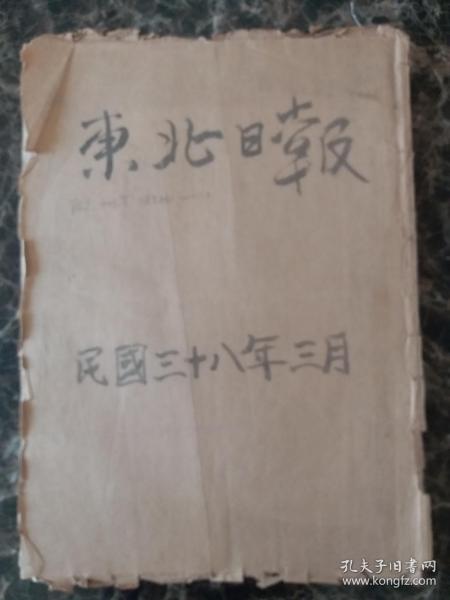 東北日報
民國三十八年三月
孔夫子旧书网
www.kongfz.com